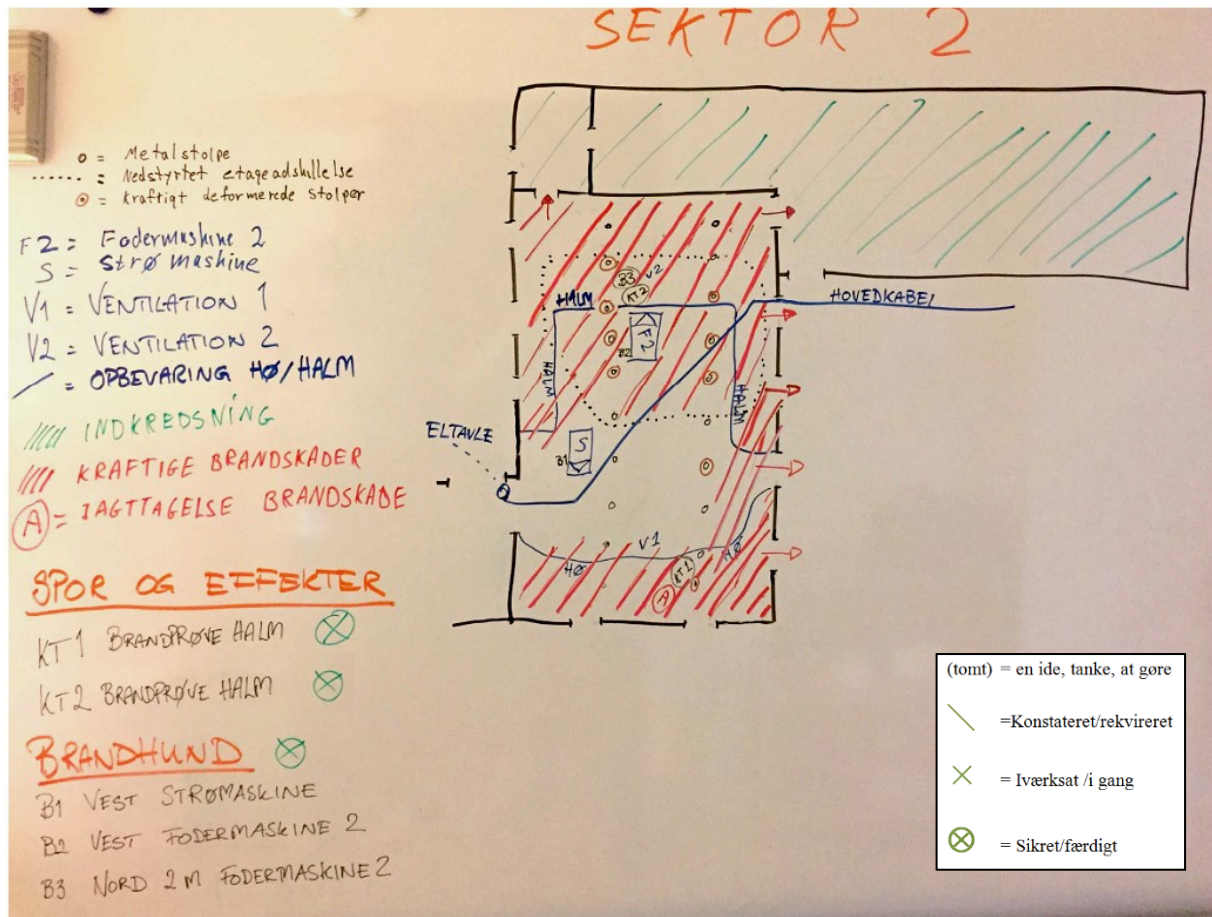 SEKTOR 2
o = Metalstolpe
...... = Nedstyrtet etageadskillelse
= Kraftigt deformerede stolper
F2 = Fodermashine 2
S = Strø mashine
V1 = VENTILATION 1
V2 = VENTILATION 2
= OPBEVARING HØ/HALM
INDKREDSNING
KRAFTIGE BRANDSKADER
A = IAGTTAGELSE BRANDSKADE
SPOR OG EFFEKTER
KT1 BRANDPRØVE HALM
KT2 BRANDPRØVE HALM
BRANDHUND
B1 VEST STRØMASKINE
B2 VEST FODERMASKINE 2
B3 NORD 2 M FODERMASKINE 2
B3 V2
KT2
HALM
HOVEDKABEL
F2
B2
HALM
HALM
ELTAVLE
S
B1
V1
HØ
HØ
KT1
A
(tomt) = en ide, tanke, at gøre
=Konstateret/rekvireret
= Iværksat /i gang
= Sikret/færdigt